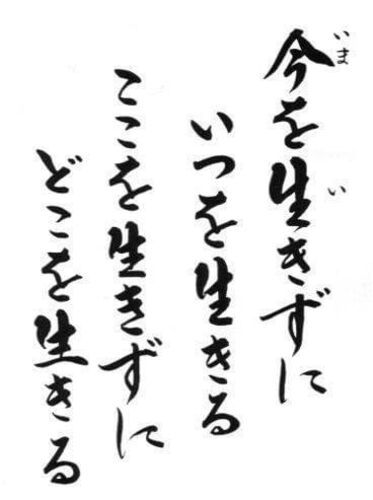 今を生きずに
いつを生きる
ここを生きずに
どこを生きる
いま
い